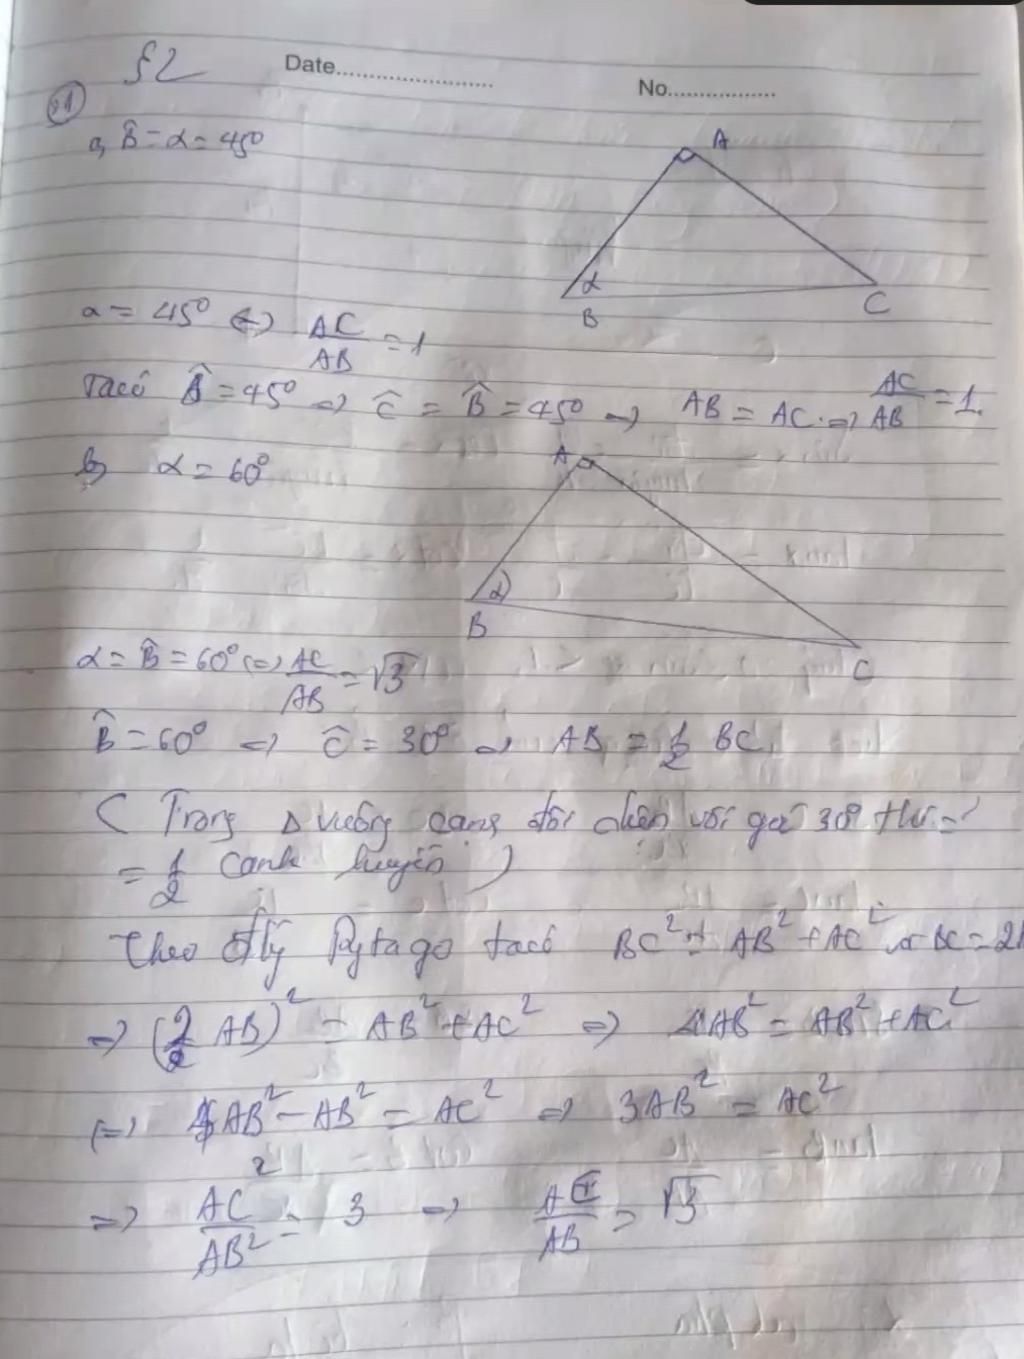 §2 Date........................ No.................
?1
a, B̂ = α = 45°
A
α
B
C
α = 45° <=> AC/AB = 1
Ta có B̂ = 45° => Ĉ = B̂ = 45° => AB = AC. => AC/AB = 1.
b, α = 60°
A
α
B
C
α = B̂ = 60° <=> AC/AB = √3
B̂ = 60° => Ĉ = 30° => AB = 1/2 BC
( Trong Δ vuông cạng đối diện với góc 30° thì =
= 1/2 Cạnh huyền )
Theo đlý Pytago ta có BC² = AB² + AC² BC = 2
=> (2 AB)² = AB² + AC² => 4AB² = AB² + AC²
<=> 4AB² - AB² = AC² => 3AB² = AC²
=> AC²/AB² = 3 => AC/AB = √3